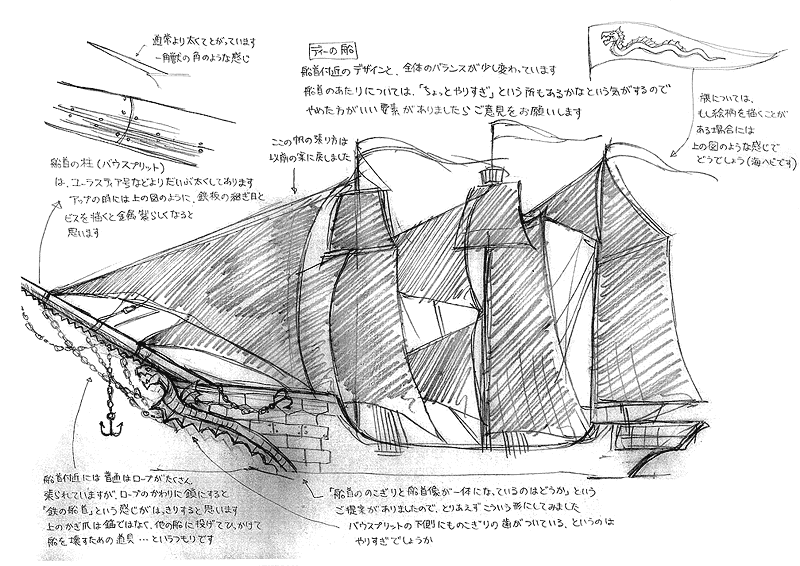 通常より太くてとがっています
一角獣の角のような感じ
ディーの船
船首付近のデザインと、全体のバランスが少し変わっています
船首のあたりについては、「ちょっとやりすぎ」という所もあるかなという気がするので
やめた方がいい要素がありましたらご意見をお願いします
旗については、
もし絵柄を描くことが
ある場合には
上の図のような感じで
どうでしょう(海ヘビです)
ここの帆の張り方は
以前の案に戻しました
船首の柱(バウスプリット)
は、ユーラスティア号などよりだいぶ太くしてあります
アップの時には上の図のように、鉄板の継ぎ目と
ビスを描くと金属製らしくなると
思います
船首付近には普通はロープがたくさん
張られていますが、ロープのかわりに鎖にすると
「鉄の船首」という感じがはっきりすると思います
上のかぎ爪は錨ではなく、他の船に投げてひっかけて
船を壊すための道具…というつもりです
「船首ののこぎりと船首像が一体になっているのはどうか」という
ご提案がありましたので、とりあえずこういう形にしてみました
バウスプリットの下側にものこぎりの歯がついている、というのは
やりすぎでしょうか